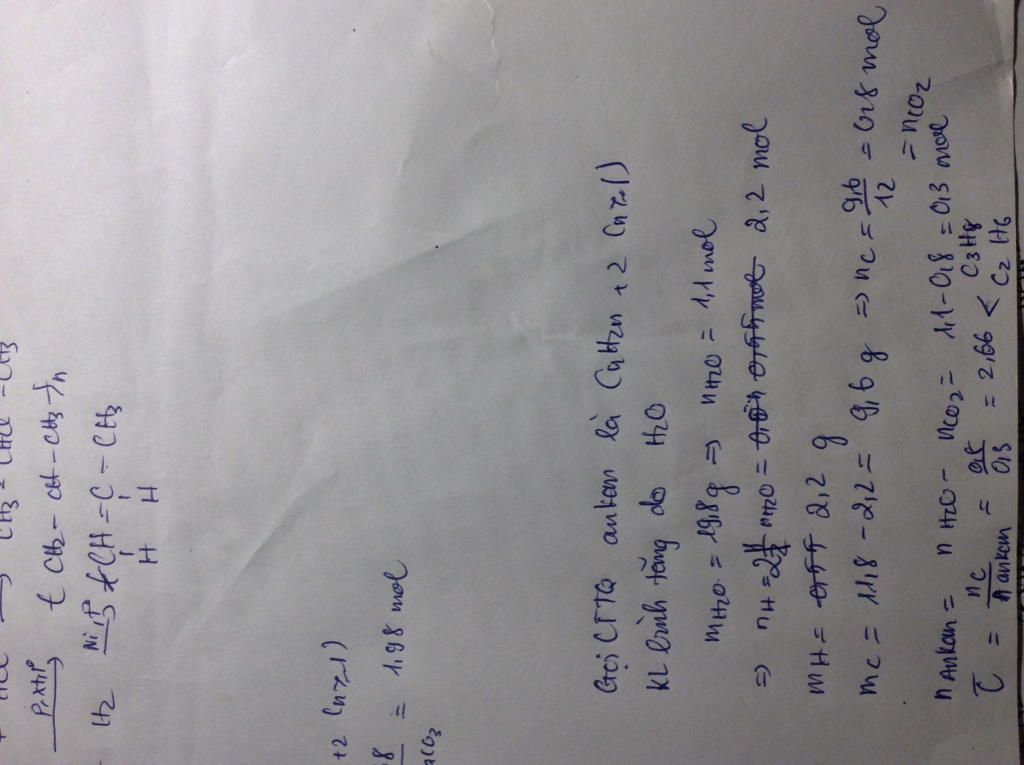 CH3 - CHCl - CH3
P, xt, t° ( CH2 - CH - CH3 )n
H2 Ni, t° CH = C - CH3
H H
+2 (n≥1)
= 1,98 mol
Gọi CTTQ ankan là CnH2n+2 (n≥1)
KL bình tăng do H2O
mH2O = 19,8g => nH2O = 1,1 mol
=> nH = 2 nH2O = 2,2 mol
mH = 2,2 g
mC = 11,8 - 2,2 = 9,6 g => nC = 9,6/12 = 0,8 mol
= nCO2
nAnkan = nH2O - nCO2 = 1,1 - 0,8 = 0,3 mol
C = nC/nankan = 0,8/0,3 = 2,66 < C3H8
C2H6